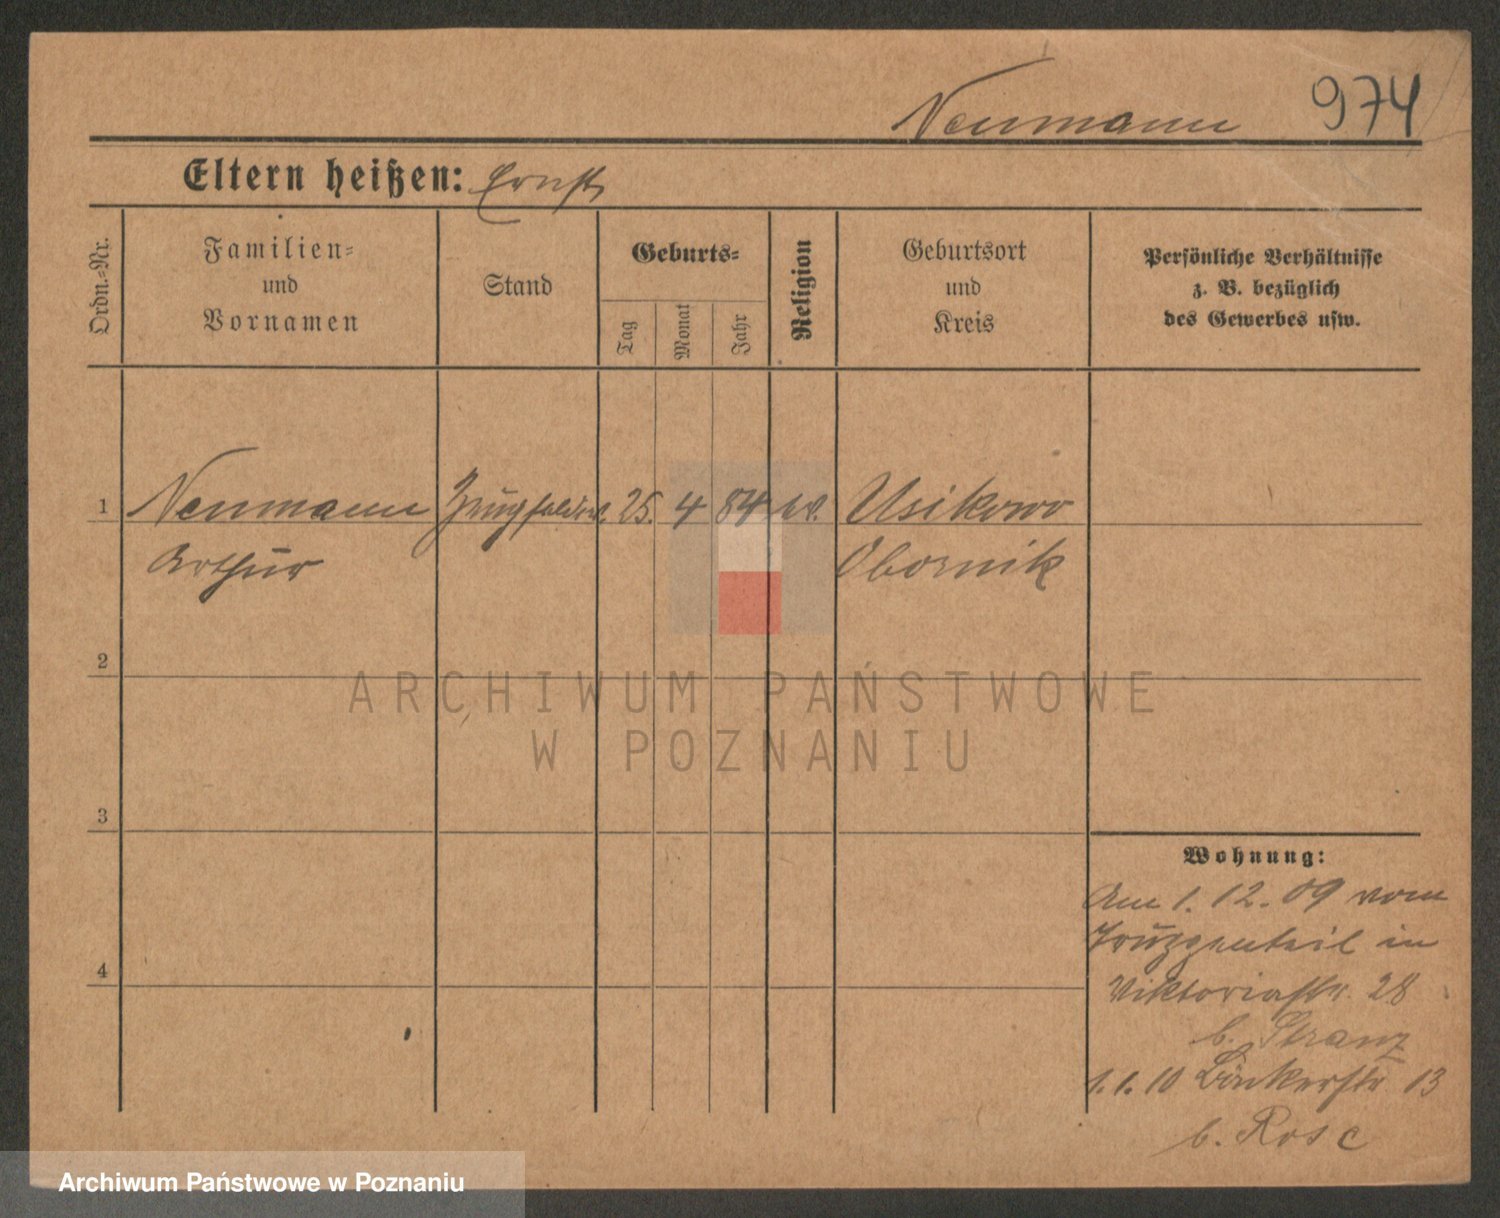 Neumann 974
Eltern heißen: Ernst
Ordn.-Nr.
Familien-
und
Vornamen
Stand
Geburts-
Tag
Monat
Jahr
Religion
Geburtsort
und
Kreis
Persönliche Verhältnisse
z. B. bezüglich
des Gewerbes usw.
1 Neumann 25. 4 84 ev. Usikowo
Arthur Obornik
2
3
4
Wohnung:
Am 1. 12. 09 vom
Truppenteil in
Viktoriastr. 28
b. Stranz
1. 1. 10 13
b. Rose
ARCHIWUM PAŃSTWOWE
W POZNANIU
Archiwum Państwowe w Poznaniu